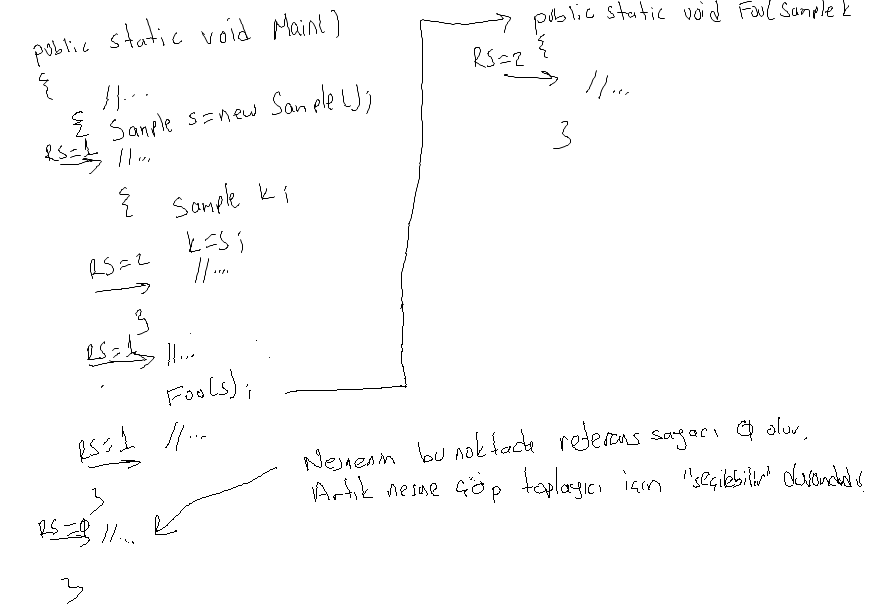 public static void Main()
{
//...
{ Sample s=new Sample();
RS=1 //...
{ Sample k;
k=s;
RS=2 //...
}
RS=1 //...
Foo(s);
RS=1 //...
}
RS=0 //...
}
public static void Foo(Sample k
{
RS=2
//...
}
Nesnenin bu noktada referans sayacı 0 olur.
Artık nesne çöp toplayıcı için "seçilebilir" durumdadır